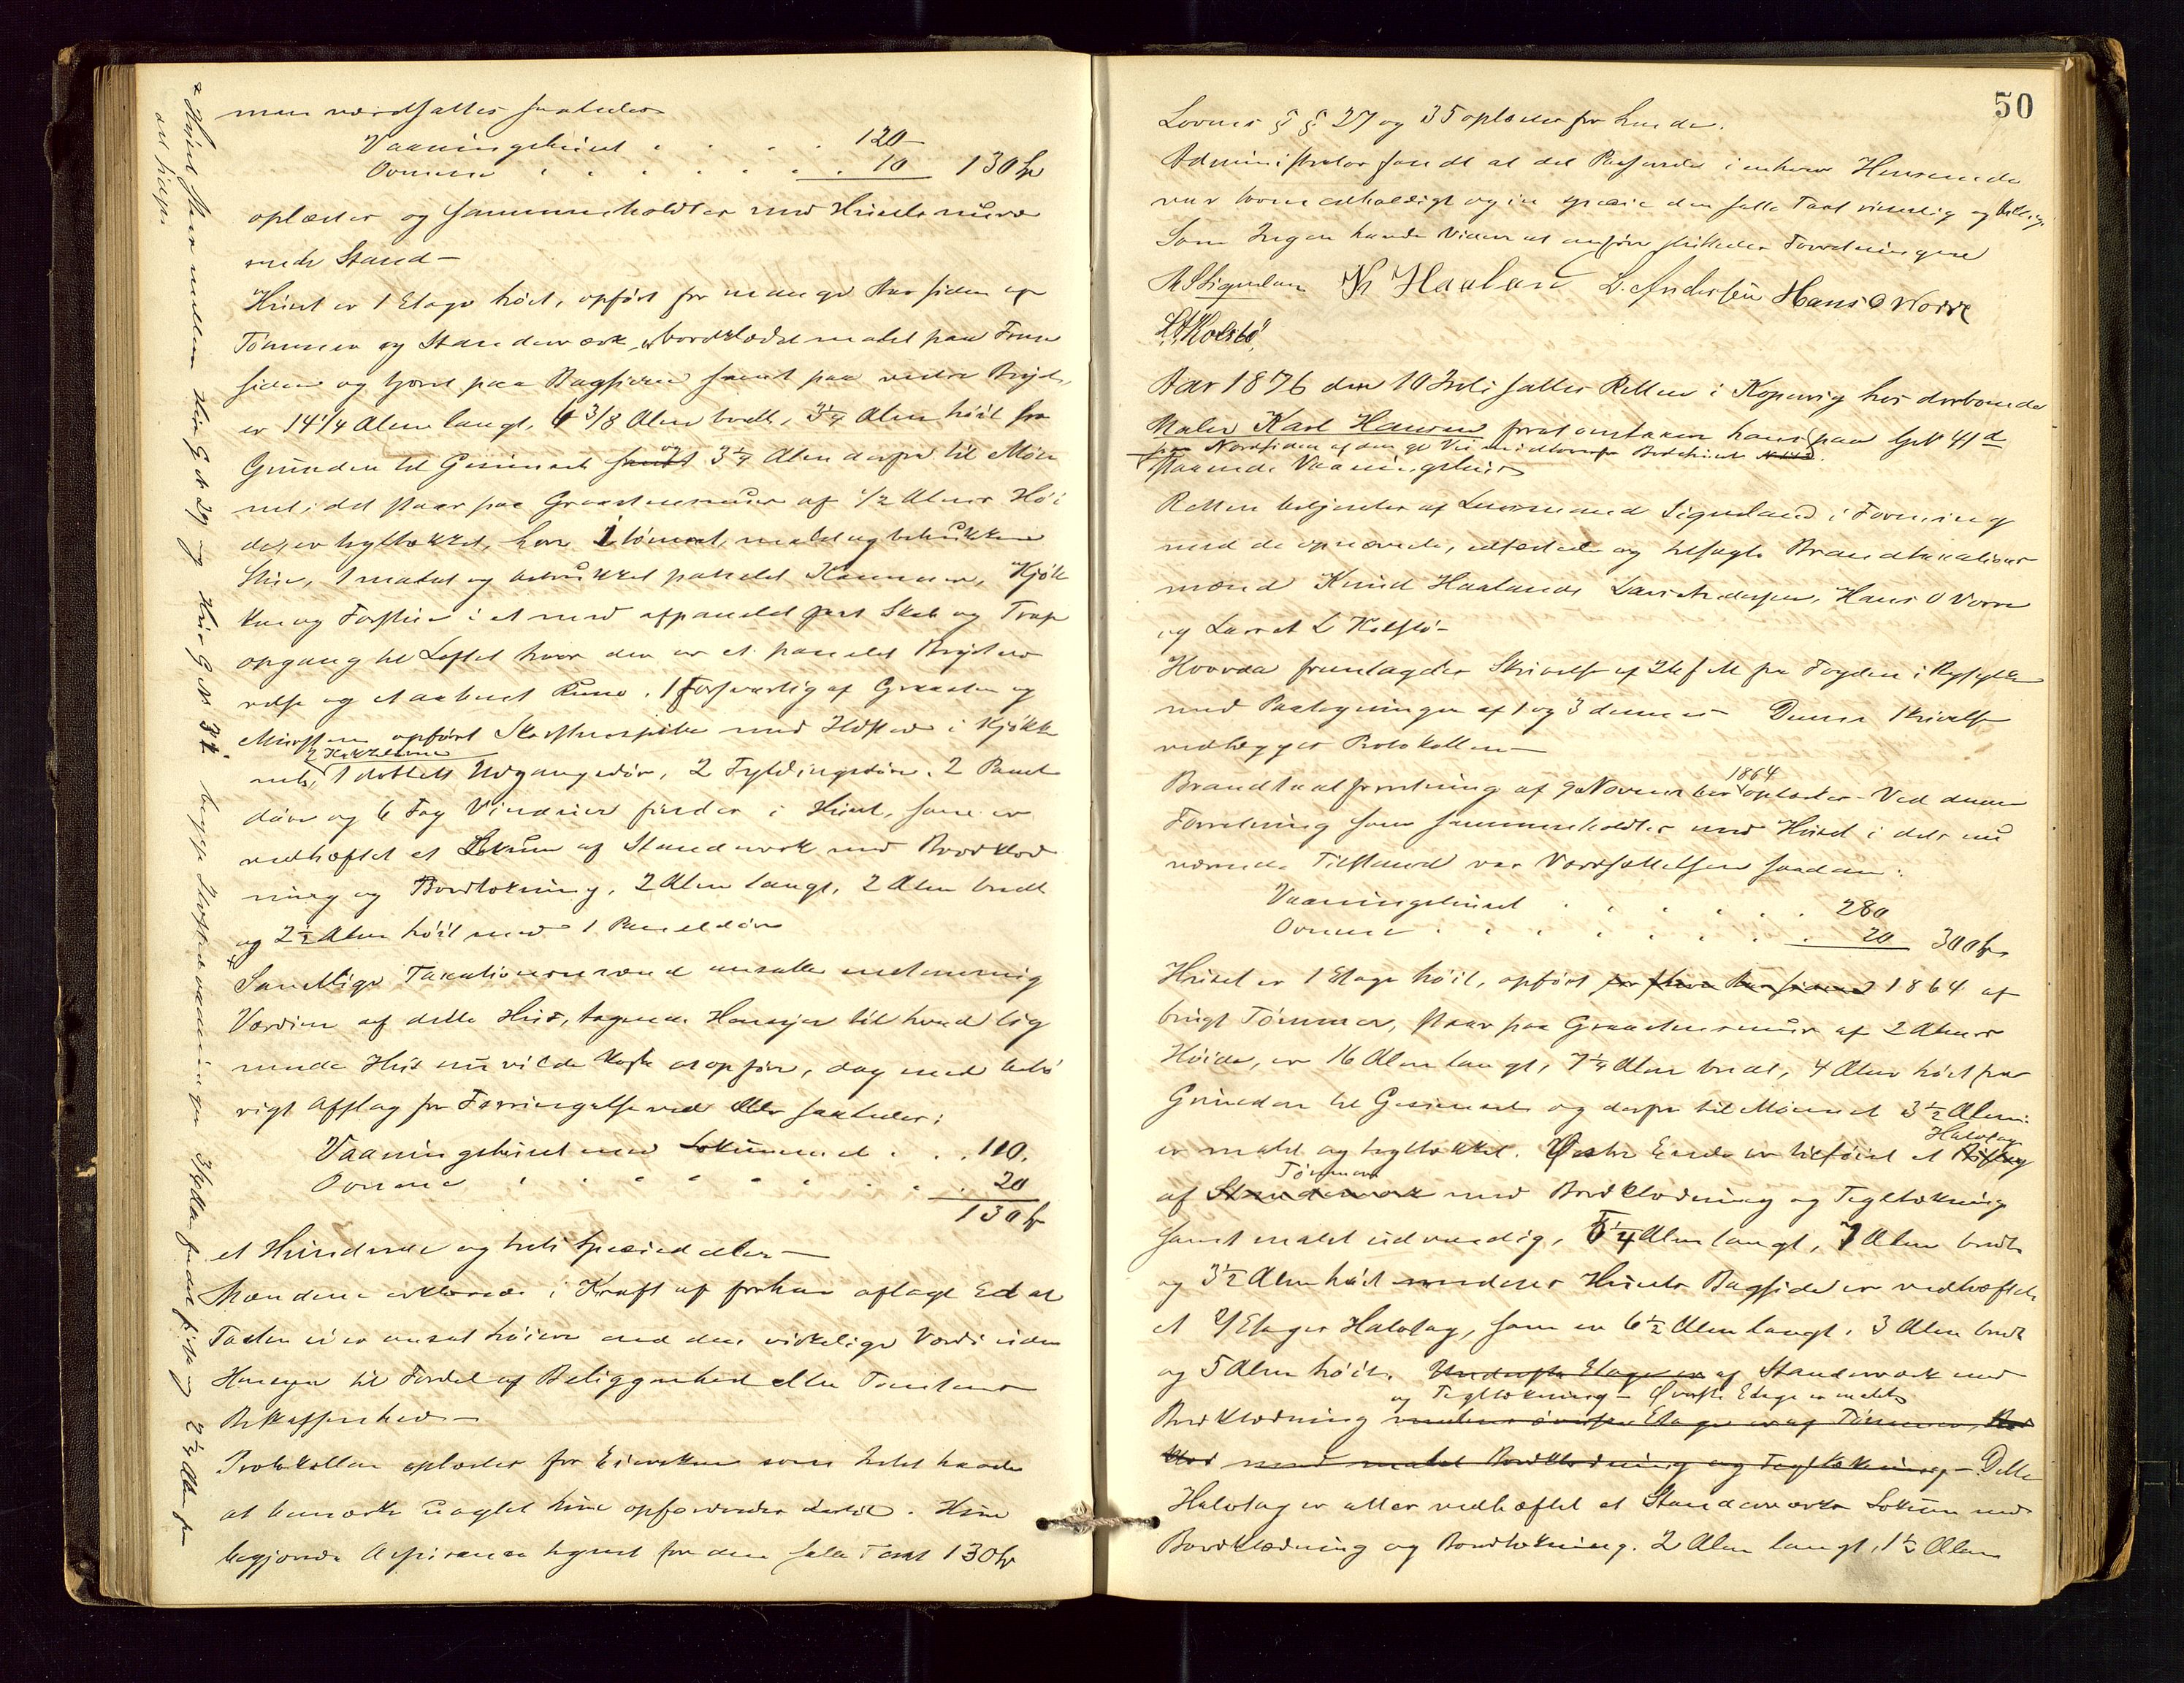 men værdsattes saaledes
Vaaningshuset . . . . 120
Ovnene . . . . . . 10 130 Sp
oplæstes og sammenholdtes med Husets nuvæ
rende Stand —
Huset er 1 Etage høit, opført for mange Aar siden af
Tømmer og Standerværk, er bordklædt malet paa Frem
siden og tjæret paa Bagsiden samt paa
er 14 1/4 Alen langt, 6 3/8 Alen bredt, 3 1/4 Alen høit fra
Grunden til Gesimsen og 3 1/4 Alen derfra til Møn
net; det staar paa Graastensmuur af 1/2 Alens Høi
de, er tegltækket, har 1 tømret, malet og betrukken
Stue, 1 malet og betrukket panelet Kammer, Kjøk
ken og Forstue i et med afpanelet Skab og Trap
opgang til Loftet hvor der er et panelet Bryst
relse og et aabent Rum. 1 forsvarlig af Graasten og
Muursten opført Skorstenspibe med Ildsted i Kjøkke
2 Kakkelovne
net, 1 dobbelt Udgangsdør, 2 Fyldingsdøre, 2 Panel
døre og 6 Fag Vinduer findes i Huset, som er
vedhæftet et Lokum af Standerværk med Bordklæd
ning og Bordtækning, 2 Alen langt, 2 Alen bredt
og 2 1/2 Alen høit med 1 Paneldør
Samtlige Taxationsmænd ansatte enstemmig
Værdien af dette Hus, tagende Hensyn til hvad lig
nende Hus nu vilde koste at opføre, dog med behø
rigt Afslag for Forringelse ved Ælde saaledes:
Vaaningshuset med Lokummet . . . 110.
Ovnene . . . . . . . . 20
130 Sp
et Hundrede og treti Speciedaler —
Mændene erklærede i Kraft af forhen aflagt Ed at
Taxten ei er ansat høiere end den virkelige Værdi uden
Hensyn til Fordel af Beliggenhed eller Tomtens
Beskaffenhed —
Protokollen oplæstes for Eiersken som Intet havde
at bemærke uagtet hun opfordredes dertil. Hun
begjærede Assurance tegnet for den satte Taxt 130 Sp
Huset staar mellem Hus G N 29 og Hus G N 32. begge
50
Lovens § § 27 og 35 oplæstes for hende.
Administrator fandt at det Passerede i enhver Henseende
var overensstemmende og in specie den satte Taxt rimelig og billig.
Som Ingen havde Videre at anføre sluttedes Forretningen
M Sigvaland K Haaland L. Andersen Hans O Vorre
L. L. Kolstø
Aar 1876 den 10 Juli sattes Retten i Kopervig hos derboende
Maler Karl Hansen for at omtaxere hans paa G N 41 d
paa Nordsiden af den gl Vei
staaende Vaaningshus
Retten betjentes af Lensmand Sigvaland i Forening
med de opnævnte, edfæstede og tilsagte Brandtaxations
mænd Knud Haaland, Lars Andersen, Hans O Vorre
og Lars L Kolstø —
Hvorda fremlagdes Skrivelse af 26 f M fra Fogden i Ryfylke
med Paategninger af 1 og 3 dennes — Denne Skrivelse
vedlægges Protokollen —
Brandtaxtforretning af 9 November 1864 oplæstes — Ved denne
Forretning som sammenholdtes med Huset i dets nu
værende Tilstand var Værdsættelsen saadan:
Vaaningshuset . . . . . . 280
Ovnene . . . . . . . . 20 300 Sp
Huset er 1 Etage høit, opført for flere Aar siden 1864 af
brugt Tømmer, staar paa Graastensmuur af 2 Alens
Høide, er 16 Alen langt, 7 1/4 Alen bredt, 4 Alen høit fra
Grunden til Gesimsen og derfra til Mønnet 3 1/2 Alen:
er malet og tegltækket. Østre Ende er tilføiet et Halvtag
af Standerværk Tømmer med Bordklædning og Tegltækning
samt malet udvendig, 5 1/4 Alen langt, 7 Alen bredt
og 3 1/2 Alen høit Husets Bagside er vedhæftet
et 2 Etages Halvtag, som er 6 1/2 Alen langt, 3 Alen bredt
og 5 Alen høit. Underste Etage er af Standerværk med
og Tegltækning — Øverste Etage er malet
Bordklædning medens øverste Etage er af Tømmer,
med malet Bordklædning og Tegltækning — Dette
Halvtag er atter vedhæftet et Standerværks Lokum med
Bordklædning og Bordtækning. 2 Alen langt, 1 1/2 Alen